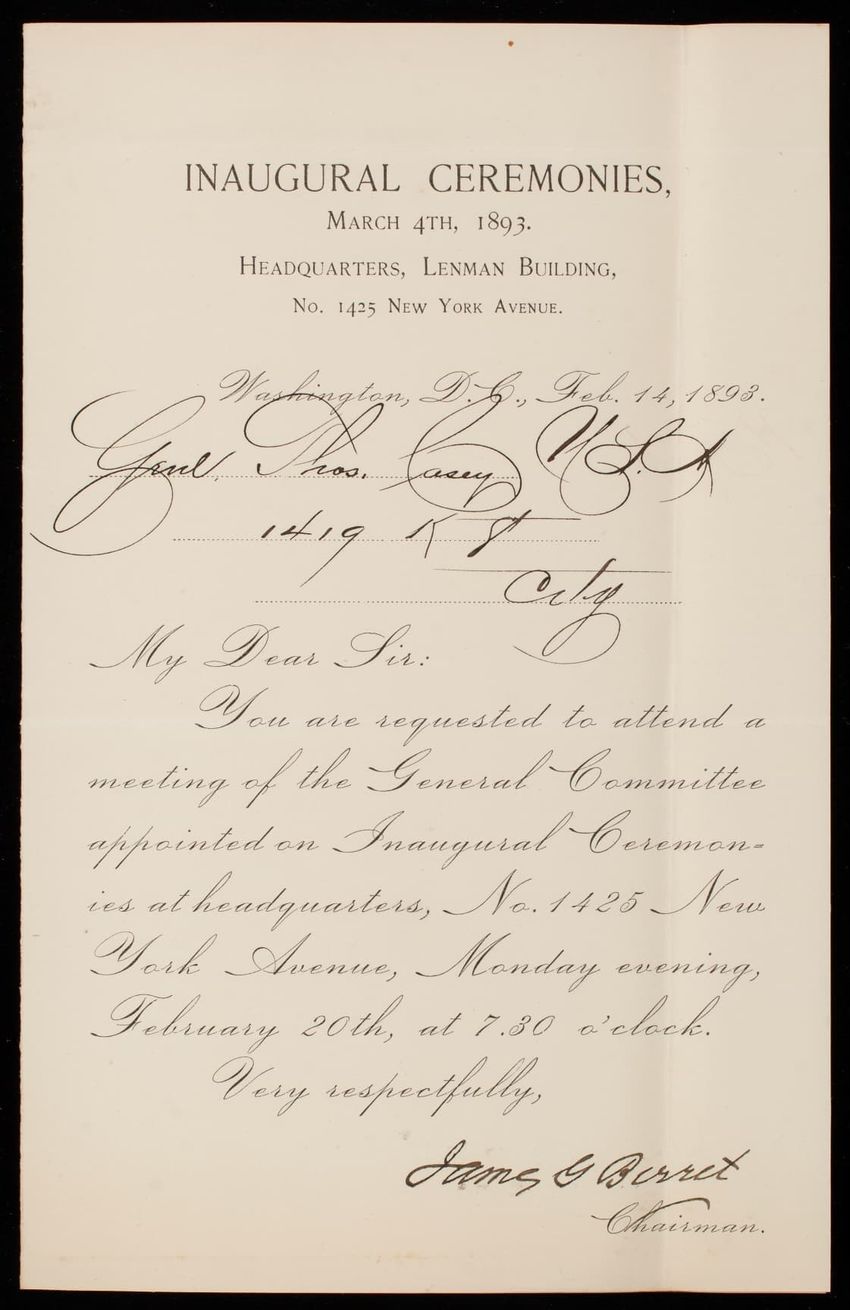 INAUGURAL CEREMONIES,
MARCH 4TH, 1893.
HEADQUARTERS, LENMAN BUILDING,
No. 1425 NEW YORK AVENUE.
Washington, D.C., Feb. 14, 1893.
Genl. Thos. Casey U.S.A
1419 K St
City
My Dear Sir:
You are requested to attend a
meeting of the General Committee
appointed on Inaugural Ceremon=
ies at headquarters, No. 1425 New
York Avenue, Monday evening,
February 20th, at 7.30 o'clock.
Very respectfully,
James G Berret
Chairman.